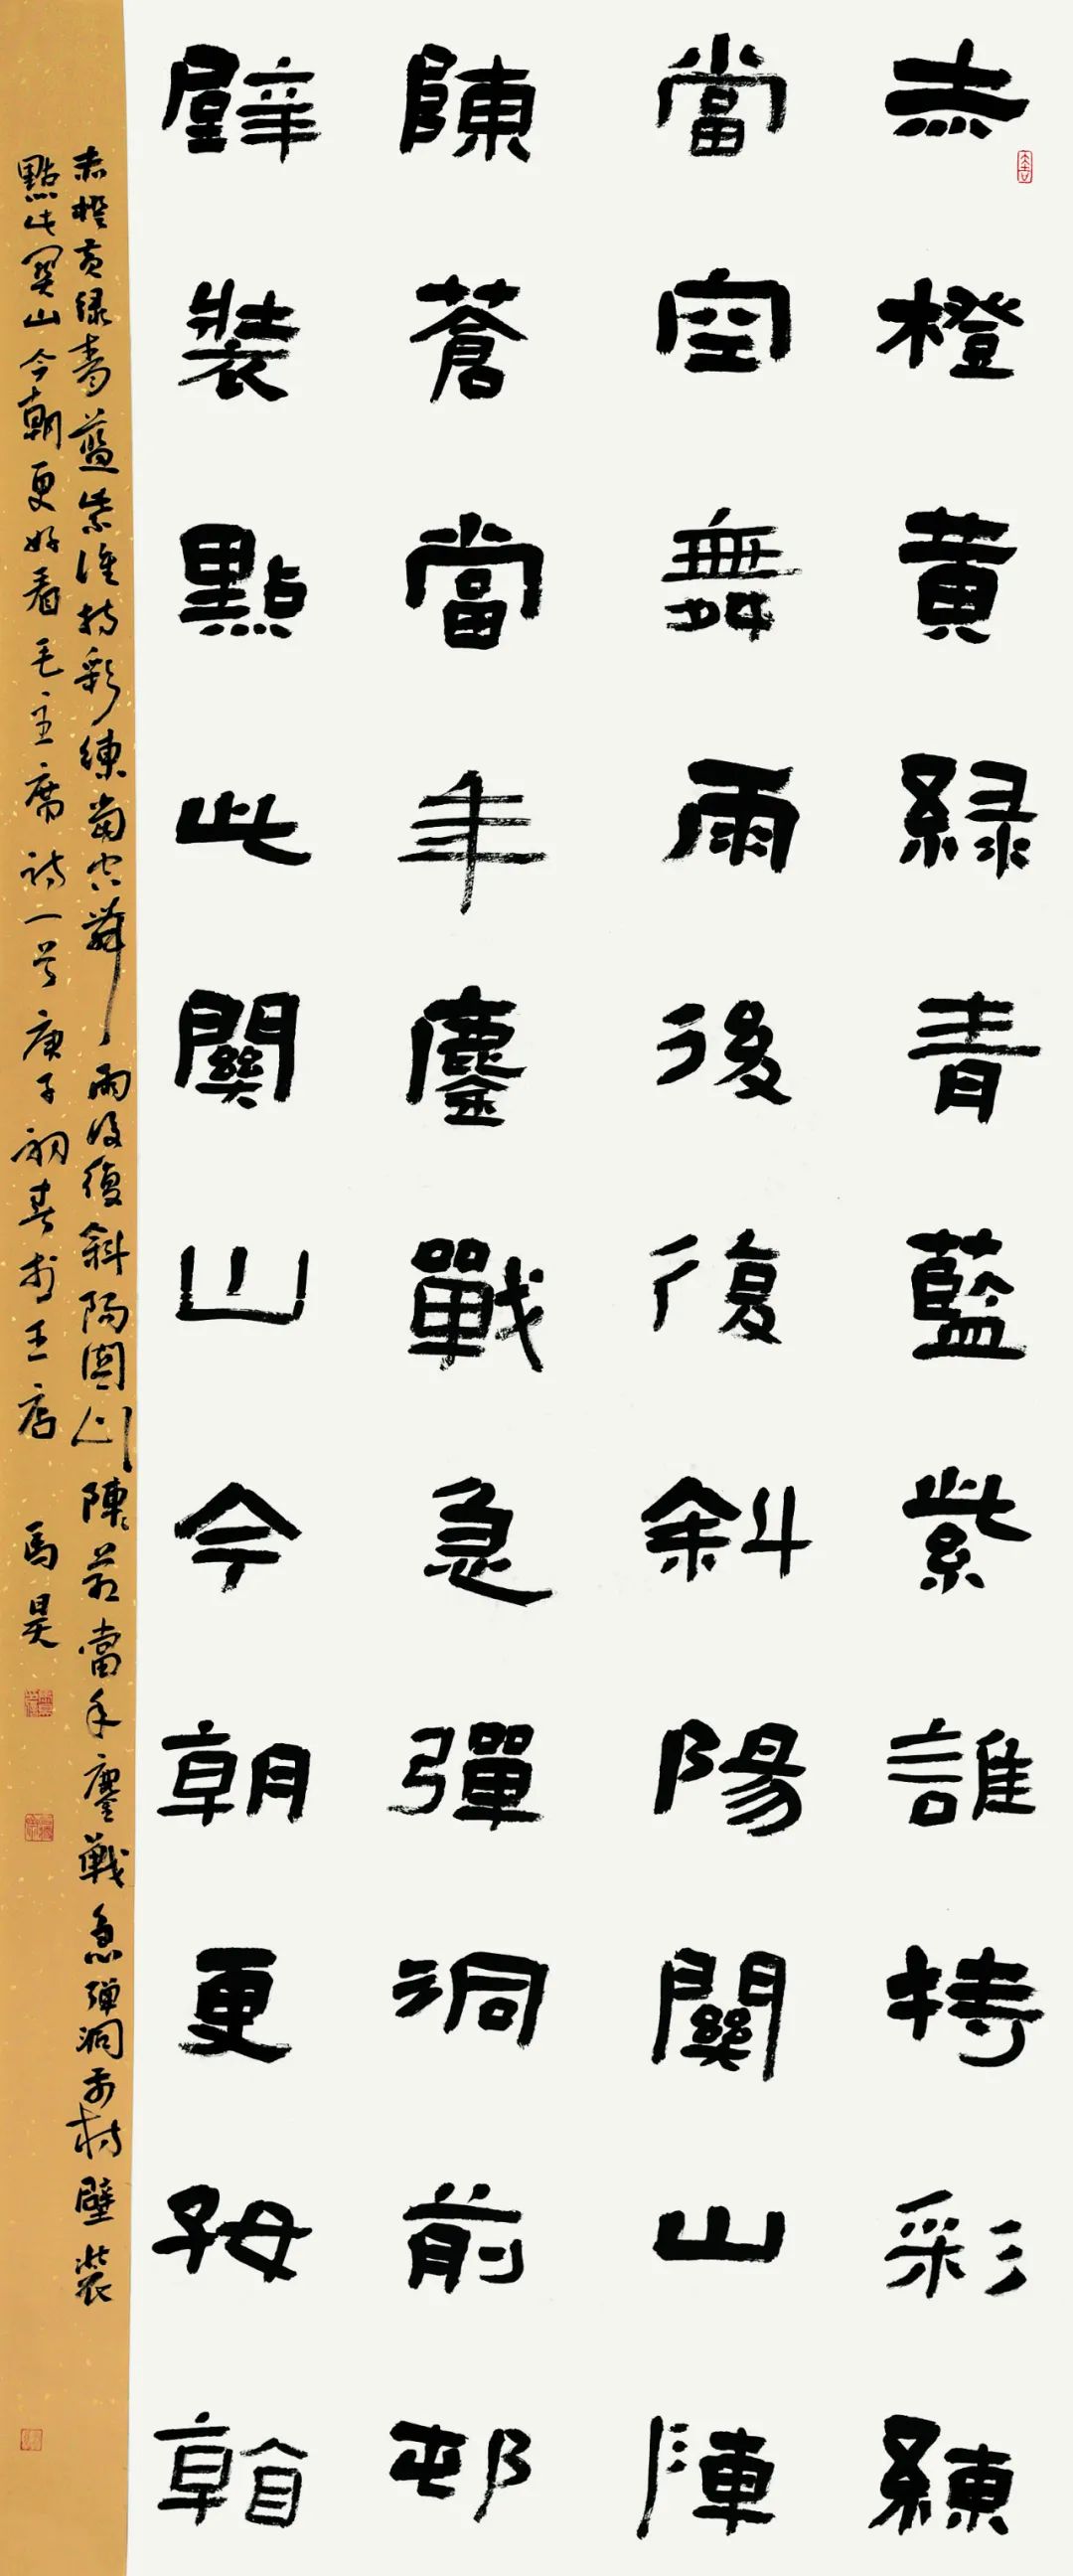 赤橙黃綠青藍紫誰持彩練
當空舞雨後復斜陽關山陣
陳蒼當年鏖戰急彈洞前邨
壁裝點此關山今朝更好看
赤橙黄緑青藍紫誰持彩練當空舞雨後復斜陽關山陳々蒼當年鏖戰急彈洞前村壁裝
點此關山今朝更好看毛主席詩一首庚子初春於王店 馬昊